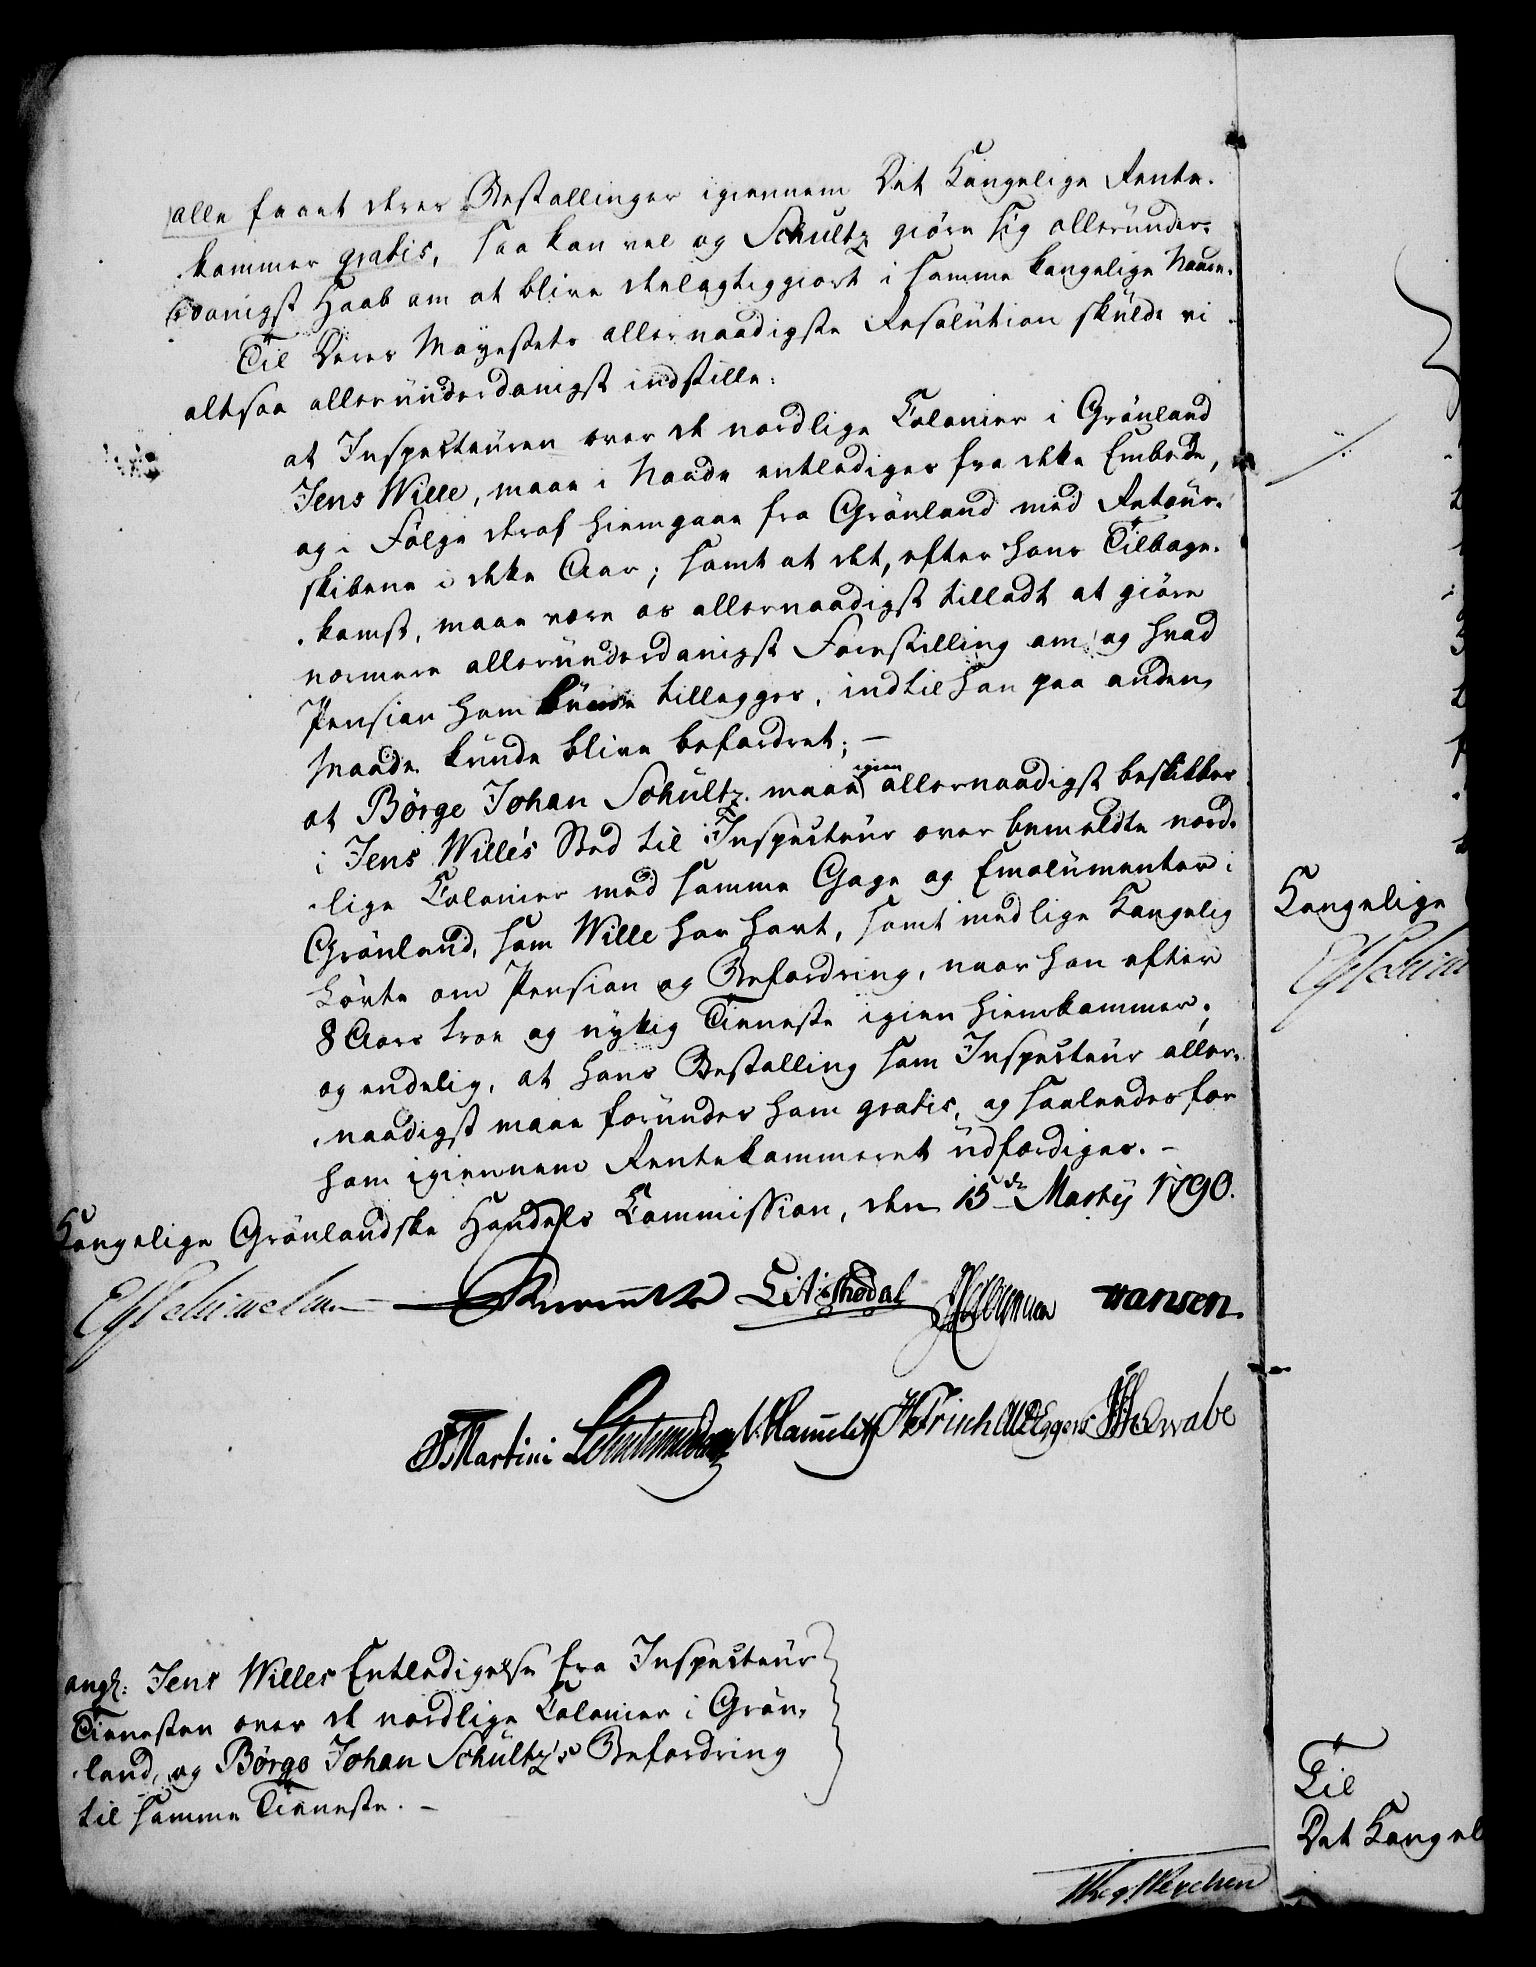 alle faaet deres Bestallinger igiennem Det Kongelige Rente-
kammer gratis, saa kan vel og Schultz giöre sig allerunder-
danigst Haab om at blive deelagtiggiort i samme kongelige Naade.
Til Deres Mayestets allernaadigste Resolution skulde vi
altsaa allerunderdanigst indstille:
at Inspecteuren over de nordlige Colonier i Grönland
Jens Wille, maae i Naade entlediges fra dette Embede,
og i Fölge deraf hiemgaae fra Grönland med Retour-
skibene i dette Aar; samt at det, efter hans Tilbage-
komst, maae være os allernaadigst tilladt at giöre
nærmere allerunderdanigst Forestilling om, og hvad
Pension ham kunde tillægges, indtil han paa anden
Maade kunde blive befordret; —
at Börge Johan Schultz maae igien allernaadigst beskikkes
i Jens Wille's Sted til Inspecteur over bemeldte nord-
lige Colonier med samme Gage og Emolumenter i
Grönland, som Wille har havt, samt med lige Kongelig
Lövte om Pension og Befordring, naar han efter
8 Aars troe og nyttig Tieneste igien hiemkommer;
og endelig, at hans Bestalling som Inspecteur aller-
naadigst maae forundes ham gratis, og saaledes for
ham igiennem Rentekammeret udfærdiges. —
Kongelige Grönlandske Handels Commission, den 15de Martij 1790.
EHSchimmelmann LitThodal Hansen.
FMartini Hammeleff HFrisch CUDEggers Schwabe
angl: Jens Willes Entledigelse fra Inspecteur
Tienesten over de nordlige Colonier i Grön-
land, og Börge Johan Schultz's Befordring
til samme Tieneste. —
Kongelige
Til
Det Kongel